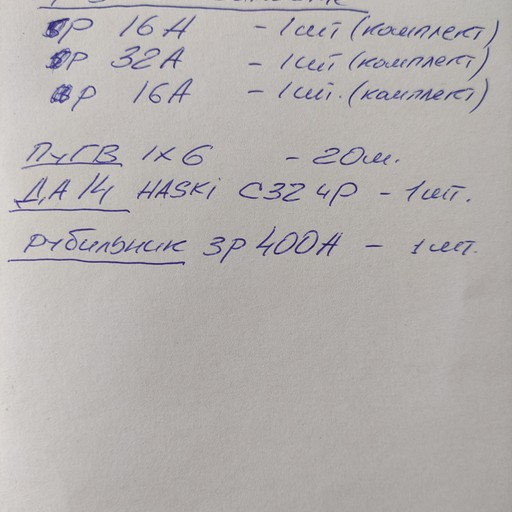 р 16А - 1шт (комплект)
р 32А - 1шт (комплект)
р 16А - 1шт. (комплект)
ПуГВ 1х6 - 20м.
ДА 14 HASKi C32 4P - 1шт.
Рубильник 3р 400А - 1шт.